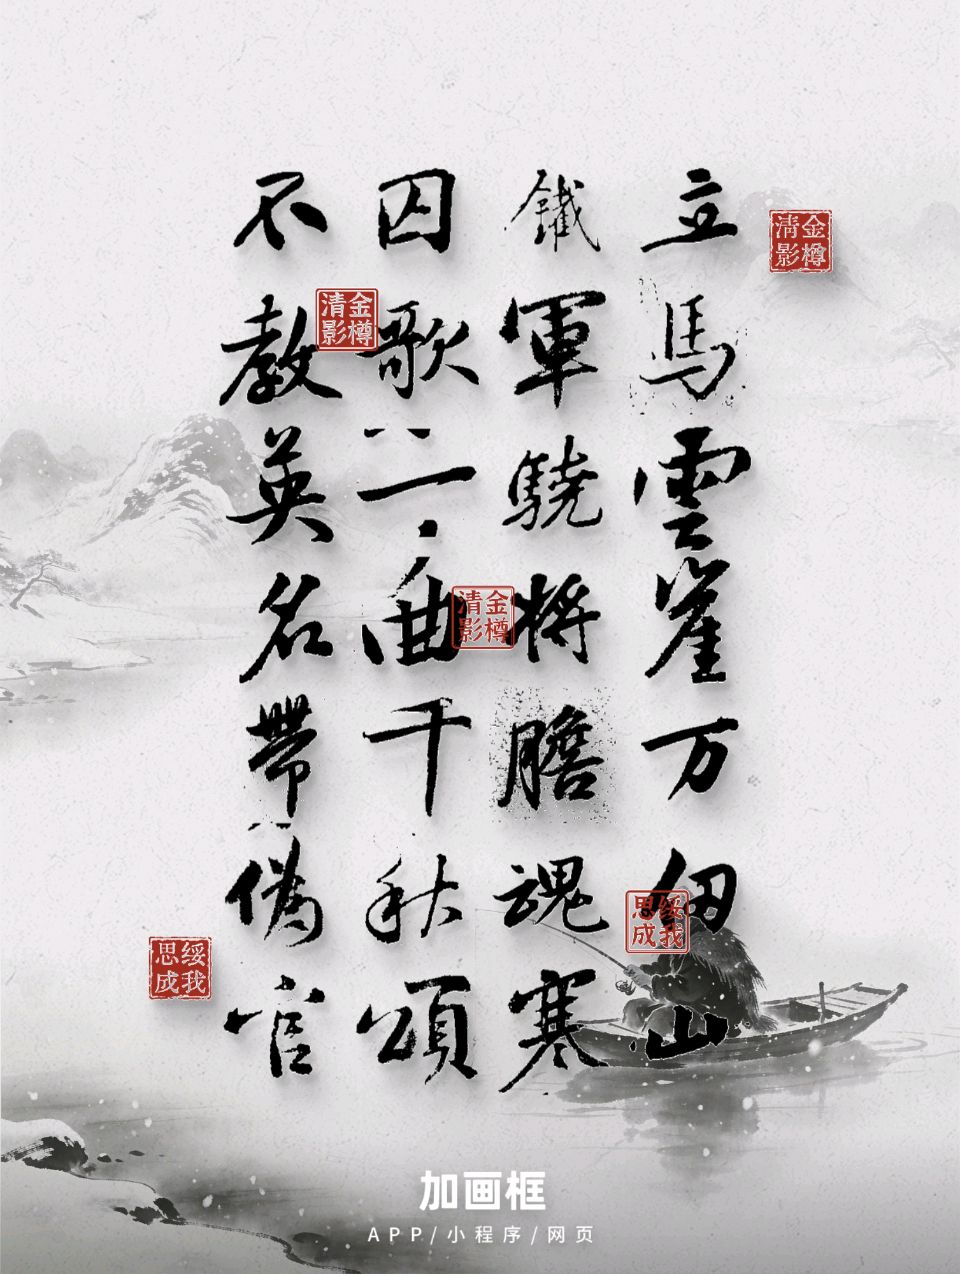 立馬雲崖万仞山
鐵軍驍將膽魂寒
囚歌一曲千秋頌
不教英名帶偽官
金樽
清影
金樽
清影
金樽
清影
绥我
思成
绥我
思成
加画框
APP/小程序/网页